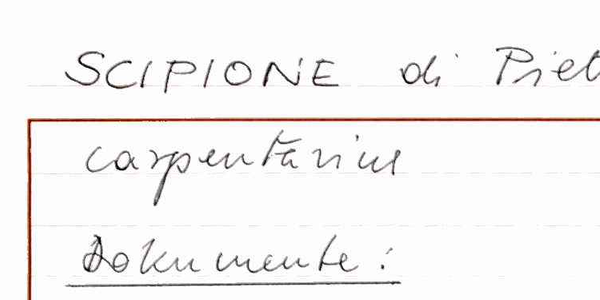 SCIPIONE di Piet
carpentarius
Dokumente: